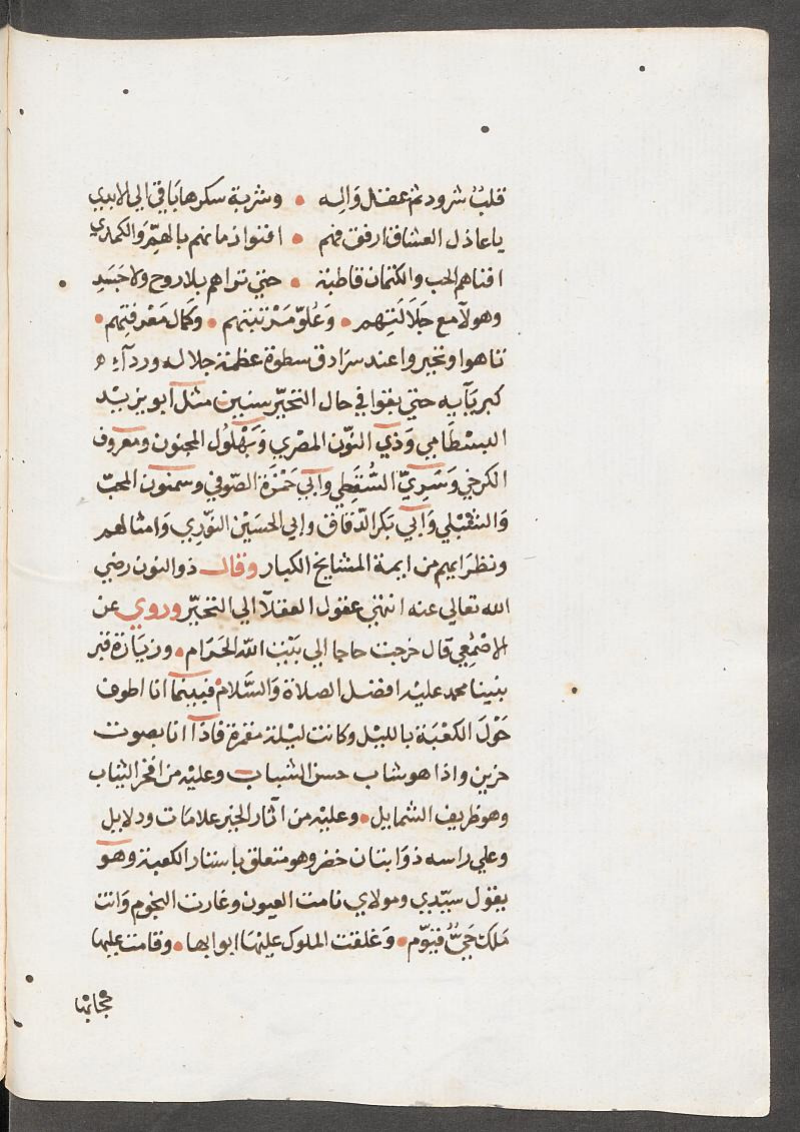 قلبٌ شرود ثم عقل وَالِه • وشربة سكرها بَاقي الي الابدي
ياعاذل العشاق ارفق منهم • افنوا زمانهم بالهمّ وَالكمدي
افناهم الحب والكتمان قاطبة • حتي تراهم بلا روح ولا جَسَدِ
وهولآ مع جَلَالَتِهم • وَعُلوّ مَرْتبتهم • وكمال مَعْرفتِهم •
تاهوا وتحيروا عند سرَادق سطوة عظمة جلاله وردآء
كبريَآيه حتي بقوا في حال التحيّر سنين مثل ابو يزيْد
البسْطَامي وَذي النّون المصْري وَبَهْلوُل المجنون ومعروف
الكرخي وَسَرِيّ السُّقَطِي وَابي حَمْزَة الصّوفي وسمنون المحبّ
وَالشّبْلي وَابي بَكر الدّقاق وابي الحسَيْن النّوَرِي وَامثالهم
ونظرَايهم من ايمة المشايخ الكبار وقال ذو النون رضي
الله تعالي عنه انتهي عقول العقلآ الي التحيّر وروي عن
الاصْمعي قال خرجت حاجا الي بَيْت اللّه الحَرَام • وزيَارة قبر
نبينا محمد عليْه افضل الصلاة وَالسَّلامْ فبينمآ انا اطوف
حَوْلَ الكعْبَة بالليْل وكانت ليْلة مقمرة فاذَآ انا بصوت
حزين واذا هو شاب حسن الشباب وعليْه من افخر الثياب
وهو ظريف الشمايل • وعليْه من آثار الخير علامَات ودلايل
وعلي راسه ذوَابتان خضر وهو متعلق باستار الكعبة وهو
يقول سيّدي ومولاي نامت العيون وغارت النجوم وَانت
مَلك حَيٌّ قيّوم • وَغلقت الملوك عليْهَا ابوابها • وقامت عليها
حجابها